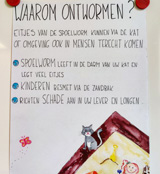 WAAROM ONTWORMEN?
EITJES VAN DE SPOELWORM KUNNEN VIA DE KAT
OF OMGEVING OOK IN MENSEN TERECHT KOMEN
SPOELWORM LEEFT IN DE DARM VAN UW KAT EN
LEGT VEEL EITJES
KINDEREN BESMET VIA DE ZANDBAK
RICHTEN SCHADE AAN IN UW LEVER EN LONGEN